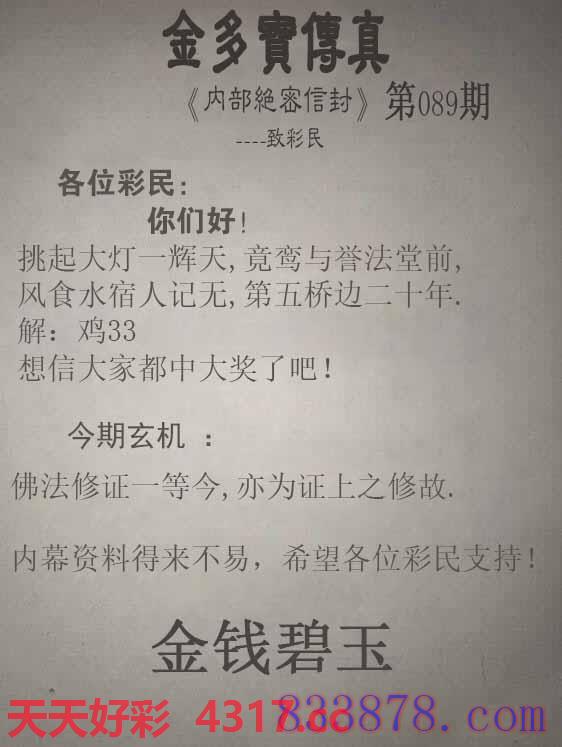 金多寳傳真
《内部絶密信封》第089期
----致彩民
各位彩民:
你们好!
挑起大灯一辉天,竟鸾与誉法堂前,
风食水宿人记无,第五桥边二十年.
解：鸡33
想信大家都中大奖了吧!
今期玄机 ：
佛法修证一等今,亦为证上之修故.
内幕资料得来不易，希望各位彩民支持!
金钱碧玉
天天好彩 4317.cc
833878.com